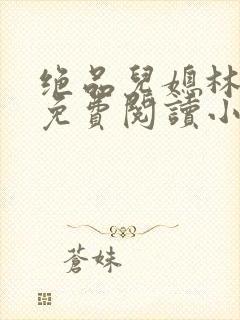 绝品兒媳林
免費閱讀小
蒼妹